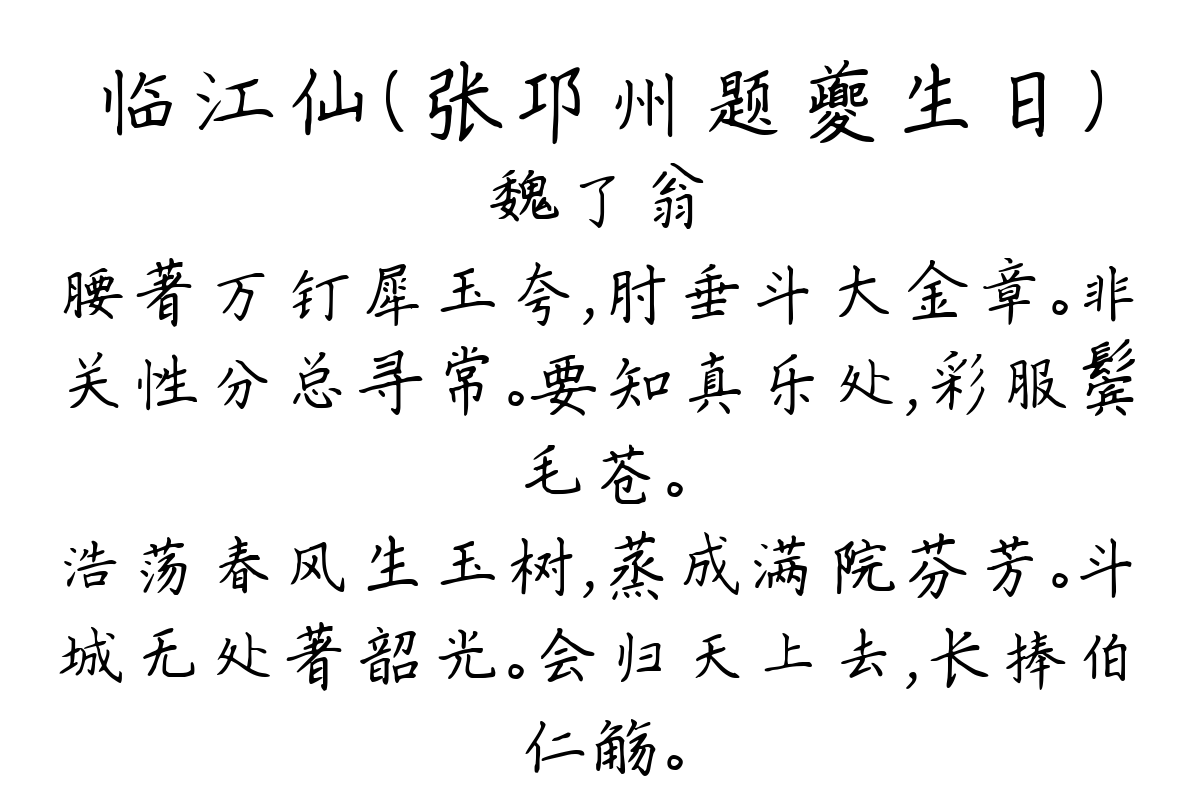 临江仙(张邛州题夔生日)
魏了翁
腰著万钉犀玉夸,肘垂斗大金章。非
关性分总寻常。要知真乐处,彩服鬓
毛苍。
浩荡春风生玉树,蒸成满院芬芳。斗
城无处著韶光。会归天上去,长捧伯
仁觞。